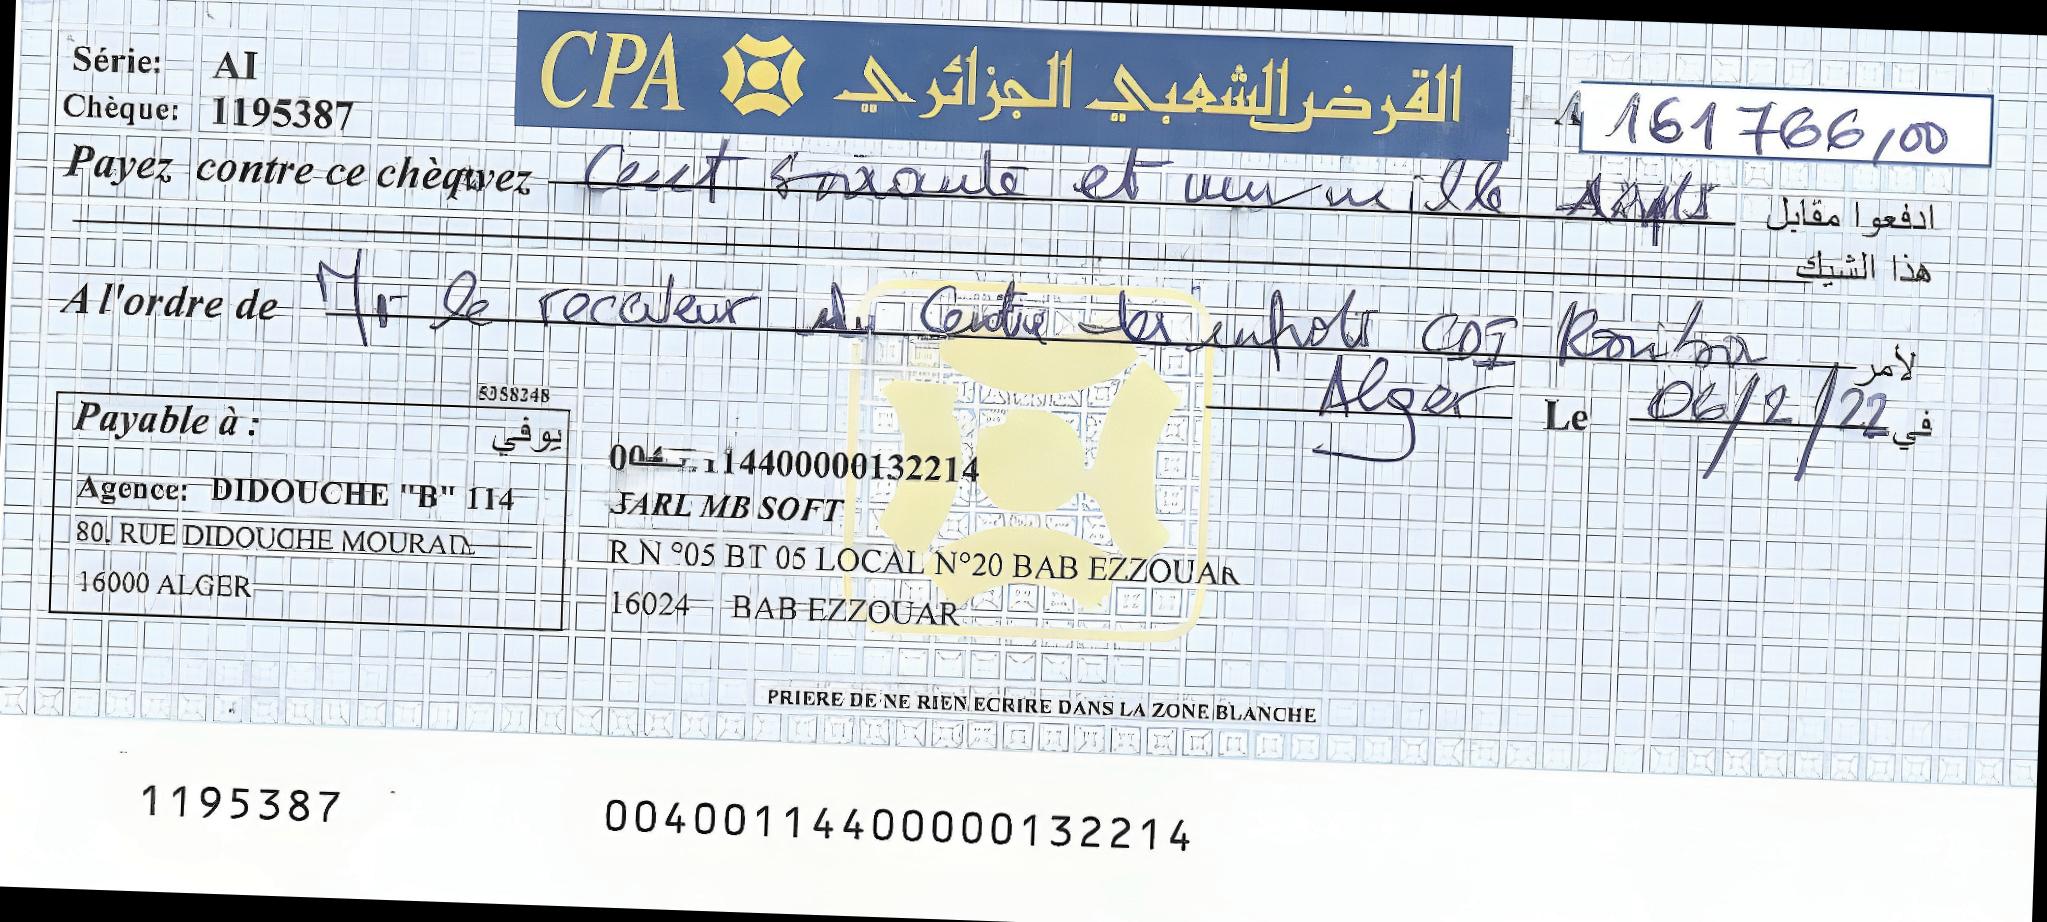 CPA القرض الشعبي الجزائري
Série: AI
Chèque: 1195387
A 161 766,00
Payez contre ce chèque Cent Soixante et un mille ادفعوا مقابل
هذا الشيك
A l'ordre de Mr le receveur du Centre des impots CDI Rouiba لأمر
Alger Le 06/2/22 في
5358248
Payable à : يوفي
Agence: DIDOUCHE "B" 114
80, RUE DIDOUCHE MOURAD
16000 ALGER
14400000132214
SARL MB SOFT
R N °05 BT 05 LOCAL N°20 BAB EZZOUAR
16024 BAB EZZOUAR
PRIERE DE NE RIEN ECRIRE DANS LA ZONE BLANCHE
1195387 00400114400000132214